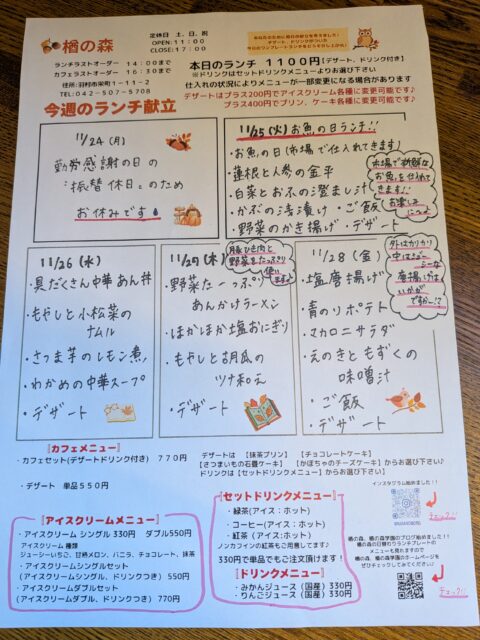 楢の森
定休日 土、日、祝
OPEN:11:00
CLOSE:17:00
ランチラストオーダー 14:00まで
カフェラストオーダー 16:30まで
住所:羽村市栄町1-11-2
TEL:042-507-5708
本日のランチ 1100円【デザート、ドリンク付き】
※ドリンクはセットドリンクメニューよりお選び下さい
仕入れの状況によりメニューが一部変更になる場合があります
デザートはプラス200円でアイスクリーム各種に変更可能です♪
プラス400円でプリン、ケーキ各種に変更可能です♪
今週のランチ献立
11/24(月)
勤労感謝の日の
振替休日。のため
お休みです
11/25(火)お魚の日ランチ!!
・お魚の日(市場で仕入れてきます)
・蓮根と人参の金平
・白菜とおふの澄まし汁
・かぶの浅漬け・ご飯
・野菜のかき揚げ・デザート
市場で新鮮な
お魚を仕入れて
きます!!
お楽しみ
に♪
11/26(水)
・具だくさん中華あん丼
・もやしと小松菜の
ナムル
・さつま芋のレモン煮
・わかめの中華スープ
・デザート
11/27(木)
豚ひき肉と
野菜をたっぷり
使い
ますよ♪
・野菜たーっぷり
あんかけラーメン
・ほかほか塩おにぎり
・もやしと胡瓜の
ツナ和え
・デザート
11/28(金)
・塩唐揚げ
・青のりポテト
・マカロニサラダ
・えのきともずくの
味噌汁
・ご飯
・デザート
外はカリカリ
中はジューシーな
唐揚げは
いかが
ですかー!?
『カフェメニュー』
・カフェセット(デザートドリンク付き) 770円
・デザート 単品550円
デザートは 【抹茶プリン】 【チョコレートケーキ】
【さつまいもの石畳ケーキ】 【かぼちゃのチーズケーキ】からお選び下さい♪
ドリンクは【セットドリンクメニュー】からお選び下さい♪
『アイスクリームメニュー』
・アイスクリーム シングル 330円 ダブル550円
アイスクリーム 種類
ジューシーいちご、甘熟メロン、バニラ、チョコレート、抹茶
・アイスクリームシングルセット
(アイスクリームシングル、ドリンクつき) 550円
・アイスクリームダブルセット
(アイスクリームダブル、ドリンクつき) 770円
『セットドリンクメニュー』
・緑茶(アイス:ホット)
・コーヒー(アイス:ホット)
・紅茶 (アイス:ホット)
ノンカフェインの紅茶もご用意してます♪
330円で単品でもご注文頂けます!
『ドリンクメニュー』
・みかんジュース(国産) 330円
・りんごジュース(国産) 330円
インスタグラム始めました!!
チェック!!
楢の森、楢の森学園のブログ始めました!!
楢の森の日替わりランチプレートの
メニューも見れますので
楢の森、楢の森学園のホームページを
ぜひチェックしてみてください♪
チェック!!